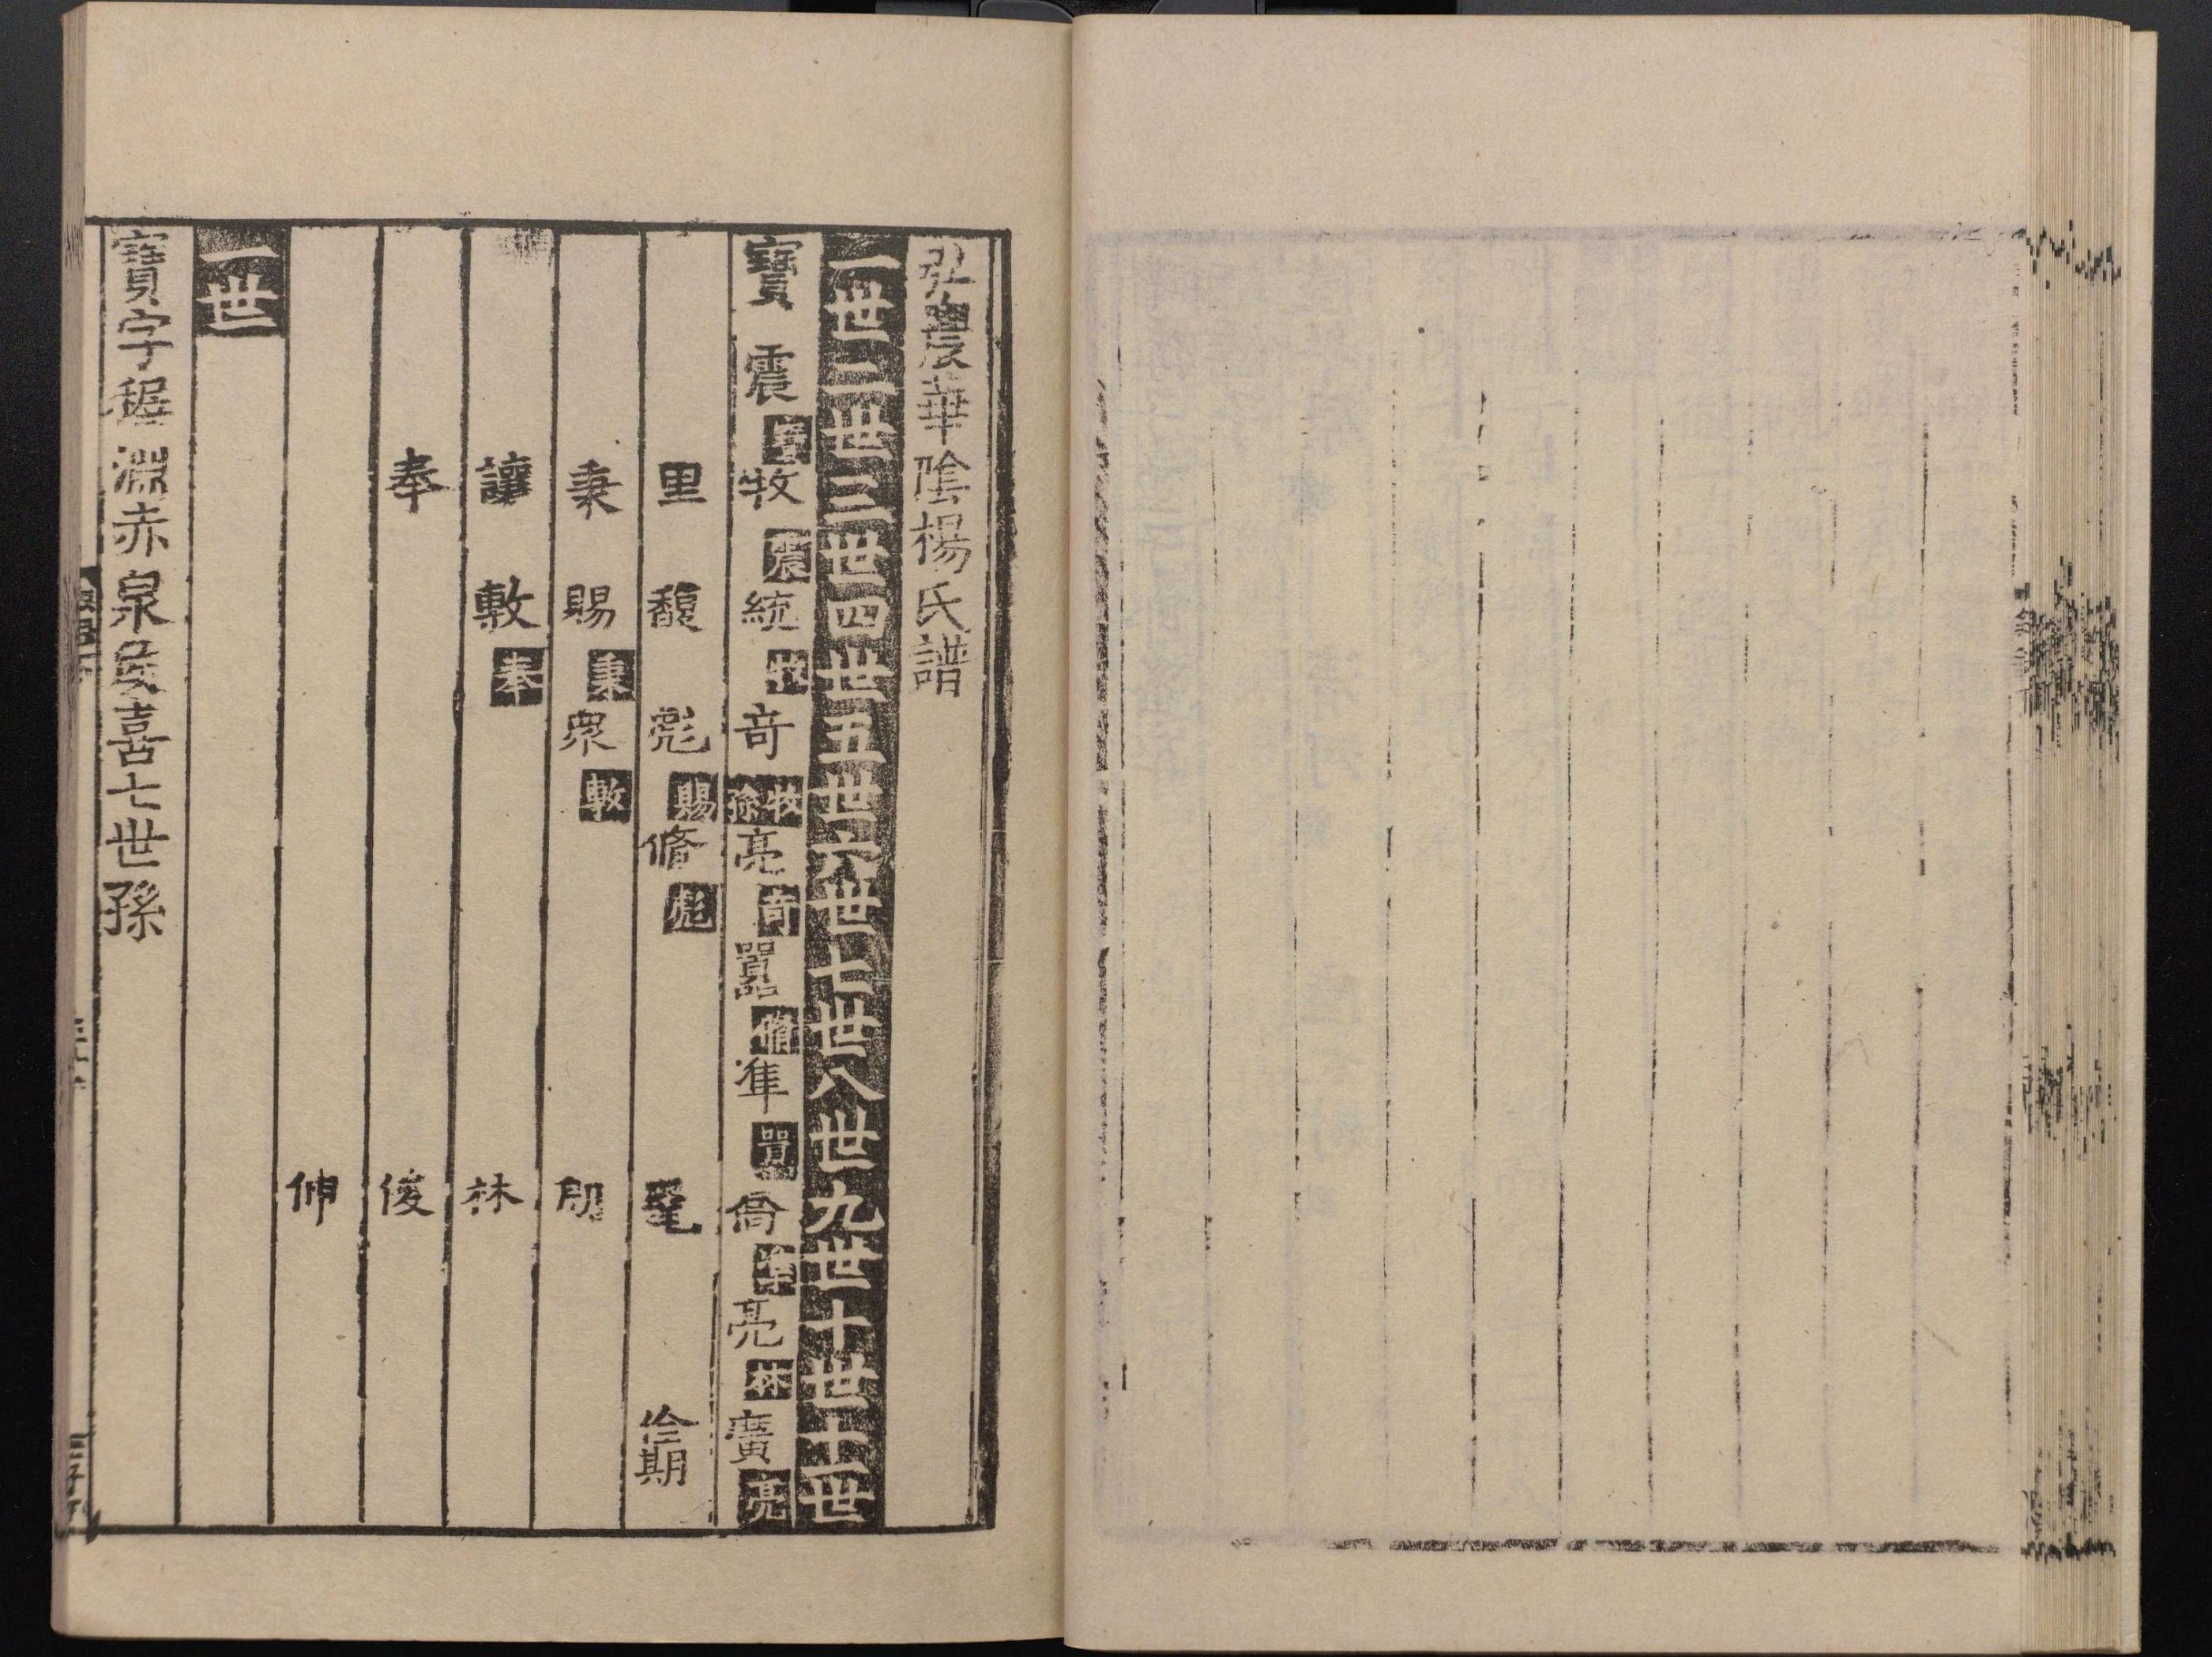 弘農華陰楊氏譜
一世二世三世四世五世六世七世八世九世十世十一世
寶 震 寶 牧 震 統 牧 奇 牧孫 亮 奇 囂 脩 準 囂 喬 準 亮 林 廣 亮
里 馥 彪 賜 脩 彪 髦 佺期
秉 賜 秉 衆 敷 朗
讓 敷 奉 林
奉 俊
仲
一世
寶字稚淵赤泉侯喜七世孫